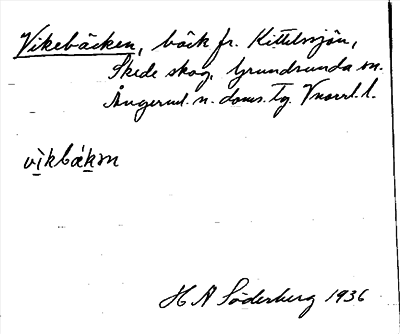 Vikebäcken, bäck fr. Kittelssjön,
Skede skog, Grundsunda sn.
Ångerml. n. doms. tg. Vnorrl. l.
vìkbákən
H A Söderberg 1936